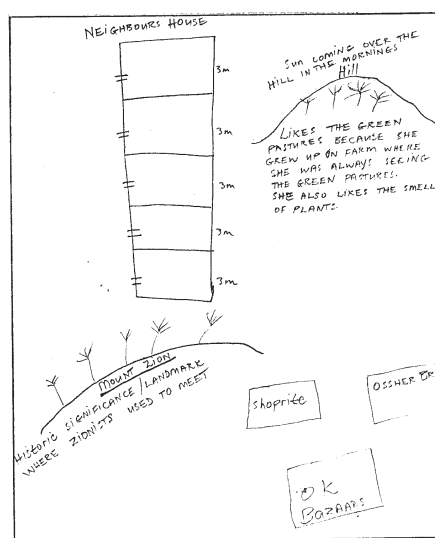 NEIGHBOURS HOUSE
3m
3m
3m
3m
3m
SUN COMING OVER THE
HILL IN THE MORNINGS
Hill
LIKES THE GREEN
PASTURES BECAUSE SHE
GREW UP ON FARM WHERE
SHE WAS ALWAYS SEEING
THE GREEN PASTURES.
SHE ALSO LIKES THE SMELL
OF PLANTS.
MOUNT ZION
HISTORIC SIGNIFICANCE/LANDMARK
WHERE ZIONISTS USED TO MEET
Shoprite
OSSHER
OK
BAZAARS